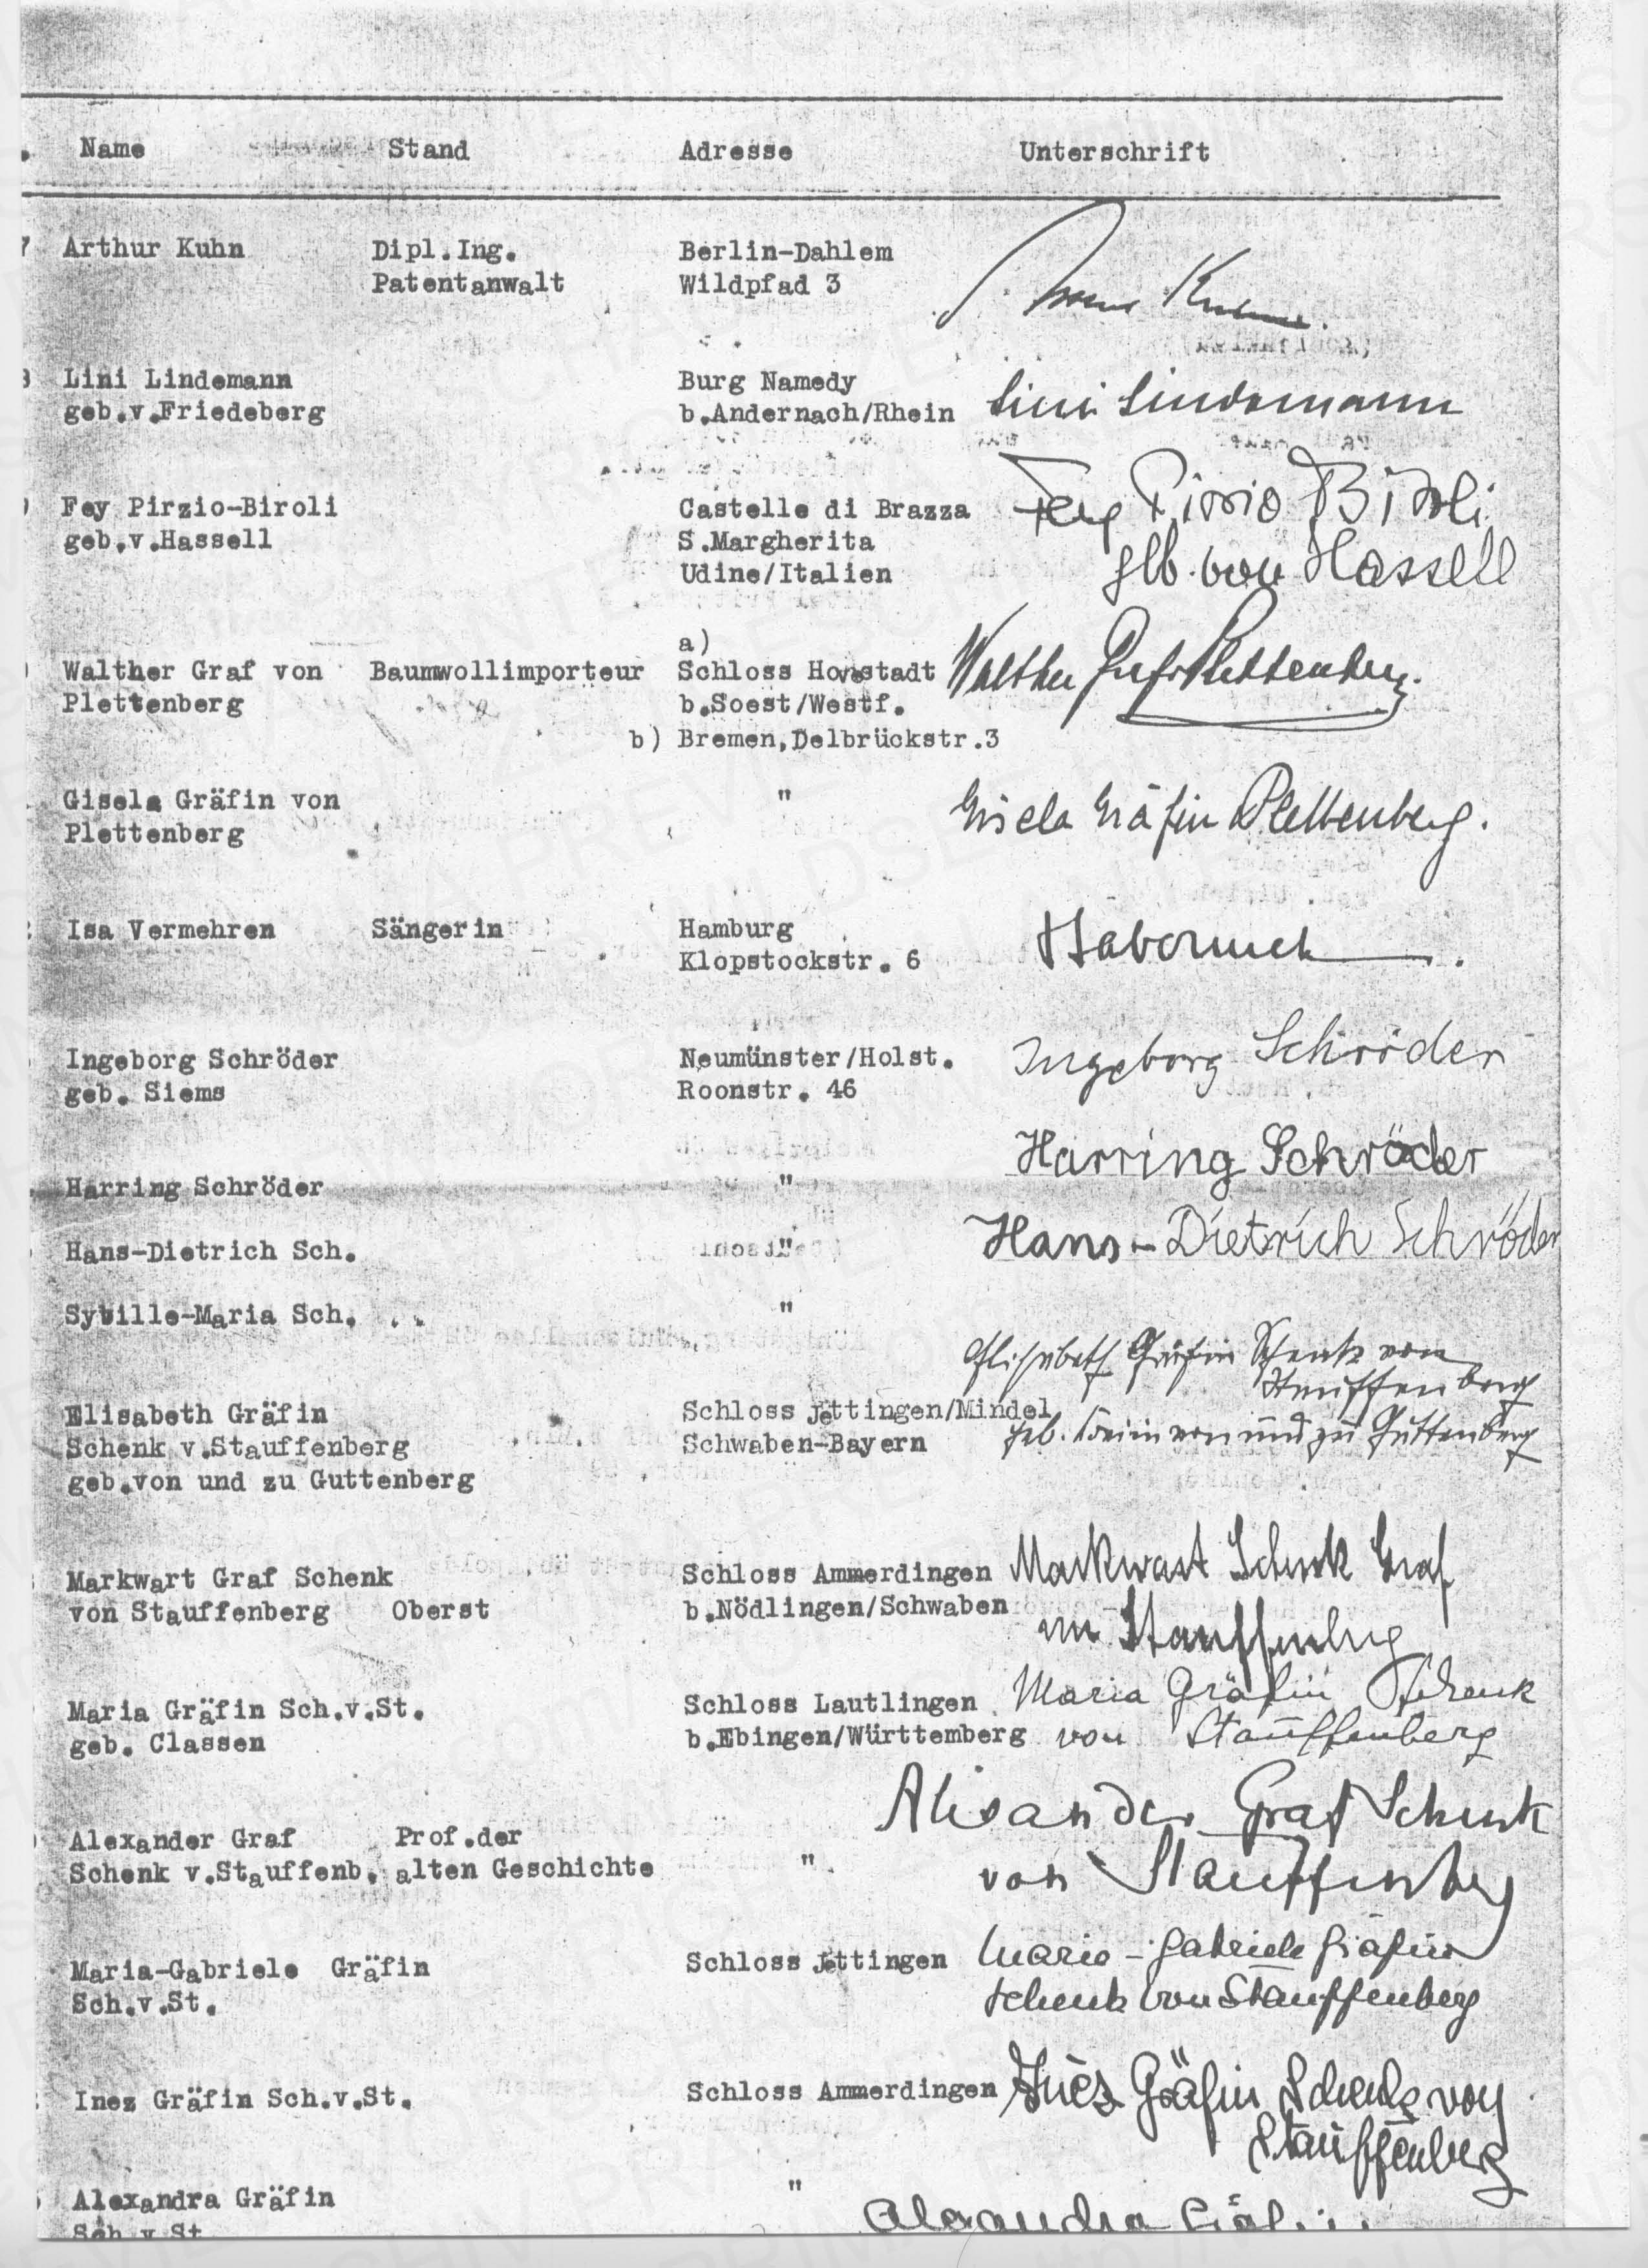 Name Stand Adresse Unterschrift
7 Arthur Kuhn Dipl.Ing. Berlin-Dahlem
Patentanwalt Wildpfad 3
Kuhn
Lini Lindemann Burg Namedy
geb.v.Friedeberg b.Andernach/Rhein Lini Lindemann
Fey Pirzio-Biroli Castelle di Brazza Fey Pirzio Biroli
geb.v.Hassell S.Margherita
Udine/Italien geb. von Hassell
a)
Walther Graf von Baumwollimporteur Schloss Hovestadt Walther Graf Plettenberg.
Plettenberg b.Soest/Westf.
b) Bremen,Delbrückstr.3
Gisela Gräfin von " Gisela Gräfin Plettenberg.
Plettenberg
Isa Vermehren Sängerin Hamburg
Klopstockstr. 6
Ingeborg Schröder Neumünster/Holst. Ingeborg Schröder
geb. Siems Roonstr. 46
Harring Schröder
Harring Schröder "
Hans-Dietrich Sch. " Hans-Dietrich Schröder
Sybille-Maria Sch. "
Elisabeth Gräfin Schenk von
Stauffenberg
Elisabeth Gräfin Schloss Jettingen/Mindel
Schenk v.Stauffenberg Schwaben-Bayern geb. von und zu Guttenberg
geb.von und zu Guttenberg
Markwart Graf Schenk Schloss Ammerdingen Markwart Schenk Graf
von Stauffenberg Oberst b.Nödlingen/Schwaben
von Stauffenberg
Maria Gräfin Sch.v.St. Schloss Lautlingen Maria Gräfin Schenk
geb. Classen b.Ebingen/Württemberg von Stauffenberg
Alexander Graf Schenk
Alexander Graf Prof.der
Schenk v.Stauffenb. alten Geschichte " von Stauffenberg
Maria-Gabriele Gräfin Schloss Jettingen Maria-Gabriele Gräfin
Sch.v.St. Schenk von Stauffenberg
Inez Gräfin Sch.v.St. Schloss Ammerdingen Inèz Gräfin Schenk von
Stauffenberg
Alexandra Gräfin "
Sch.v.St. Alexandra Gräfin